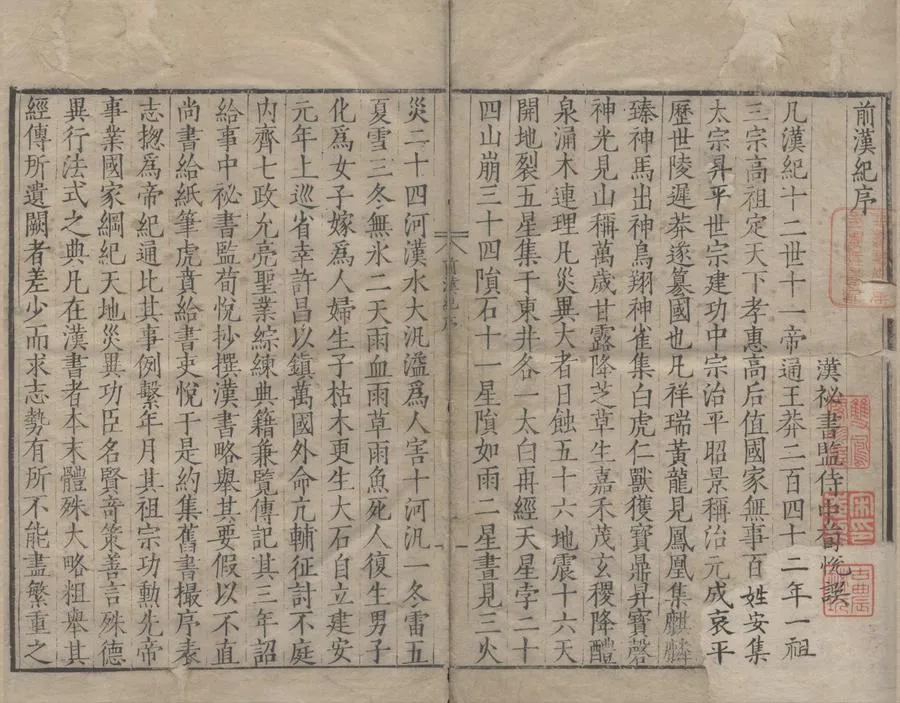 前漢紀序
漢祕書監侍中荀悅譔
凡漢紀十二世十一帝通王莽二百四十二年一祖
三宗高祖定天下孝惠高后值國家無事百姓安集
太宗昇平世宗建功中宗治平昭景稱治元成哀平
歷世陵遲莽遂篡國也凡祥瑞黃龍見鳳凰集麒麟
臻神馬出神鳥翔神雀集白虎仁獸獲寶鼎昇寶磬
神光見山稱萬歲甘露降芝草生嘉禾茂玄稷降醴
泉涌木連理凡災異大者日蝕五十六地震十六天
開地裂五星集于東井各一太白再經天星孛二十
四山崩三十四隕石十一星隕如雨二星晝見三火
前漢紀序
一
災二十四河漢水大汎溢為人害十河汎一冬雷五
夏雪三冬無氷二天雨血雨草雨魚死人復生男子
化為女子嫁為人婦生子枯木更生大石自立建安
元年上巡省幸許昌以鎮萬國外命亢輔征討不庭
內齊七政允亮聖業綜練典籍兼覽傳記其三年詔
給事中祕書監荀悅抄撰漢書略舉其要假以不直
尚書給紙筆虎賁給書吏悅于是約集舊書撮序表
志揔為帝紀通比其事例繫年月其祖宗功勳先帝
事業國家綱紀天地災異功臣名賢竒策善言殊德
異行法式之典凡在漢書者本末體殊大略粗舉其
經傳所遺闕者差少而求志勢有所不能盡繁重之